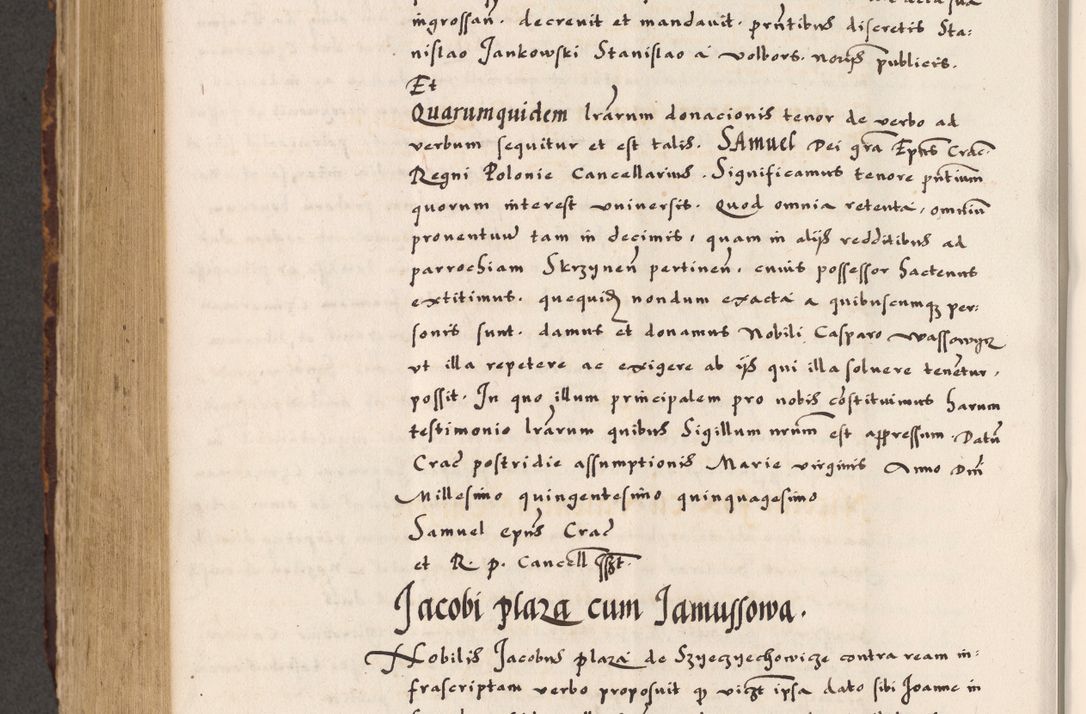 ingrossan̄. decrevit et mandavit. prn̄tibus discretis Sta:
nislao Jankowski Stanislao a volbors. notis publicis.
Et
Quarumquidem lrārum donacionis tenor de verbo ad
verbum sequitur et est talis. SAmuel Dei gra Epūs Crac̄.
Regni Polonie Cancellarius. Significamus tenore pn̄tium
quorum interest universis. Quod omnia retenta, omniū
proventuū tam in decimis, quam in alijs redditibus ad
parrochiam Skrzynen̄ pertinen̄. cuius possessor hactenus
extitimus. quequid nondum exacta a quibuscumq per:
sonis sunt. damus et donamus Nobili Casparo Wassowycz
ut illa repetere ac exigere ab ijs qui illa solvere tenētur.
possit. In quo illum principalem pro nobis cōstituimus harum
testimonio lrārum quibus Sigillum nrūm est appressum. Datū
Crac̄ postridie assumptionis Marie virginis Anno Dn̄i
Millesimo quingentesimo quinquagesimo
Samuel epūs Crac̄
et R. p. Cancell sszt.
Jacobi plaza cum Jamussowa.
Nobilis Jacobus plaza de Szyeczyechowicze contra ream in:
frascriptam verbo proposuit q viczt ipsa dato sibi Joanne in